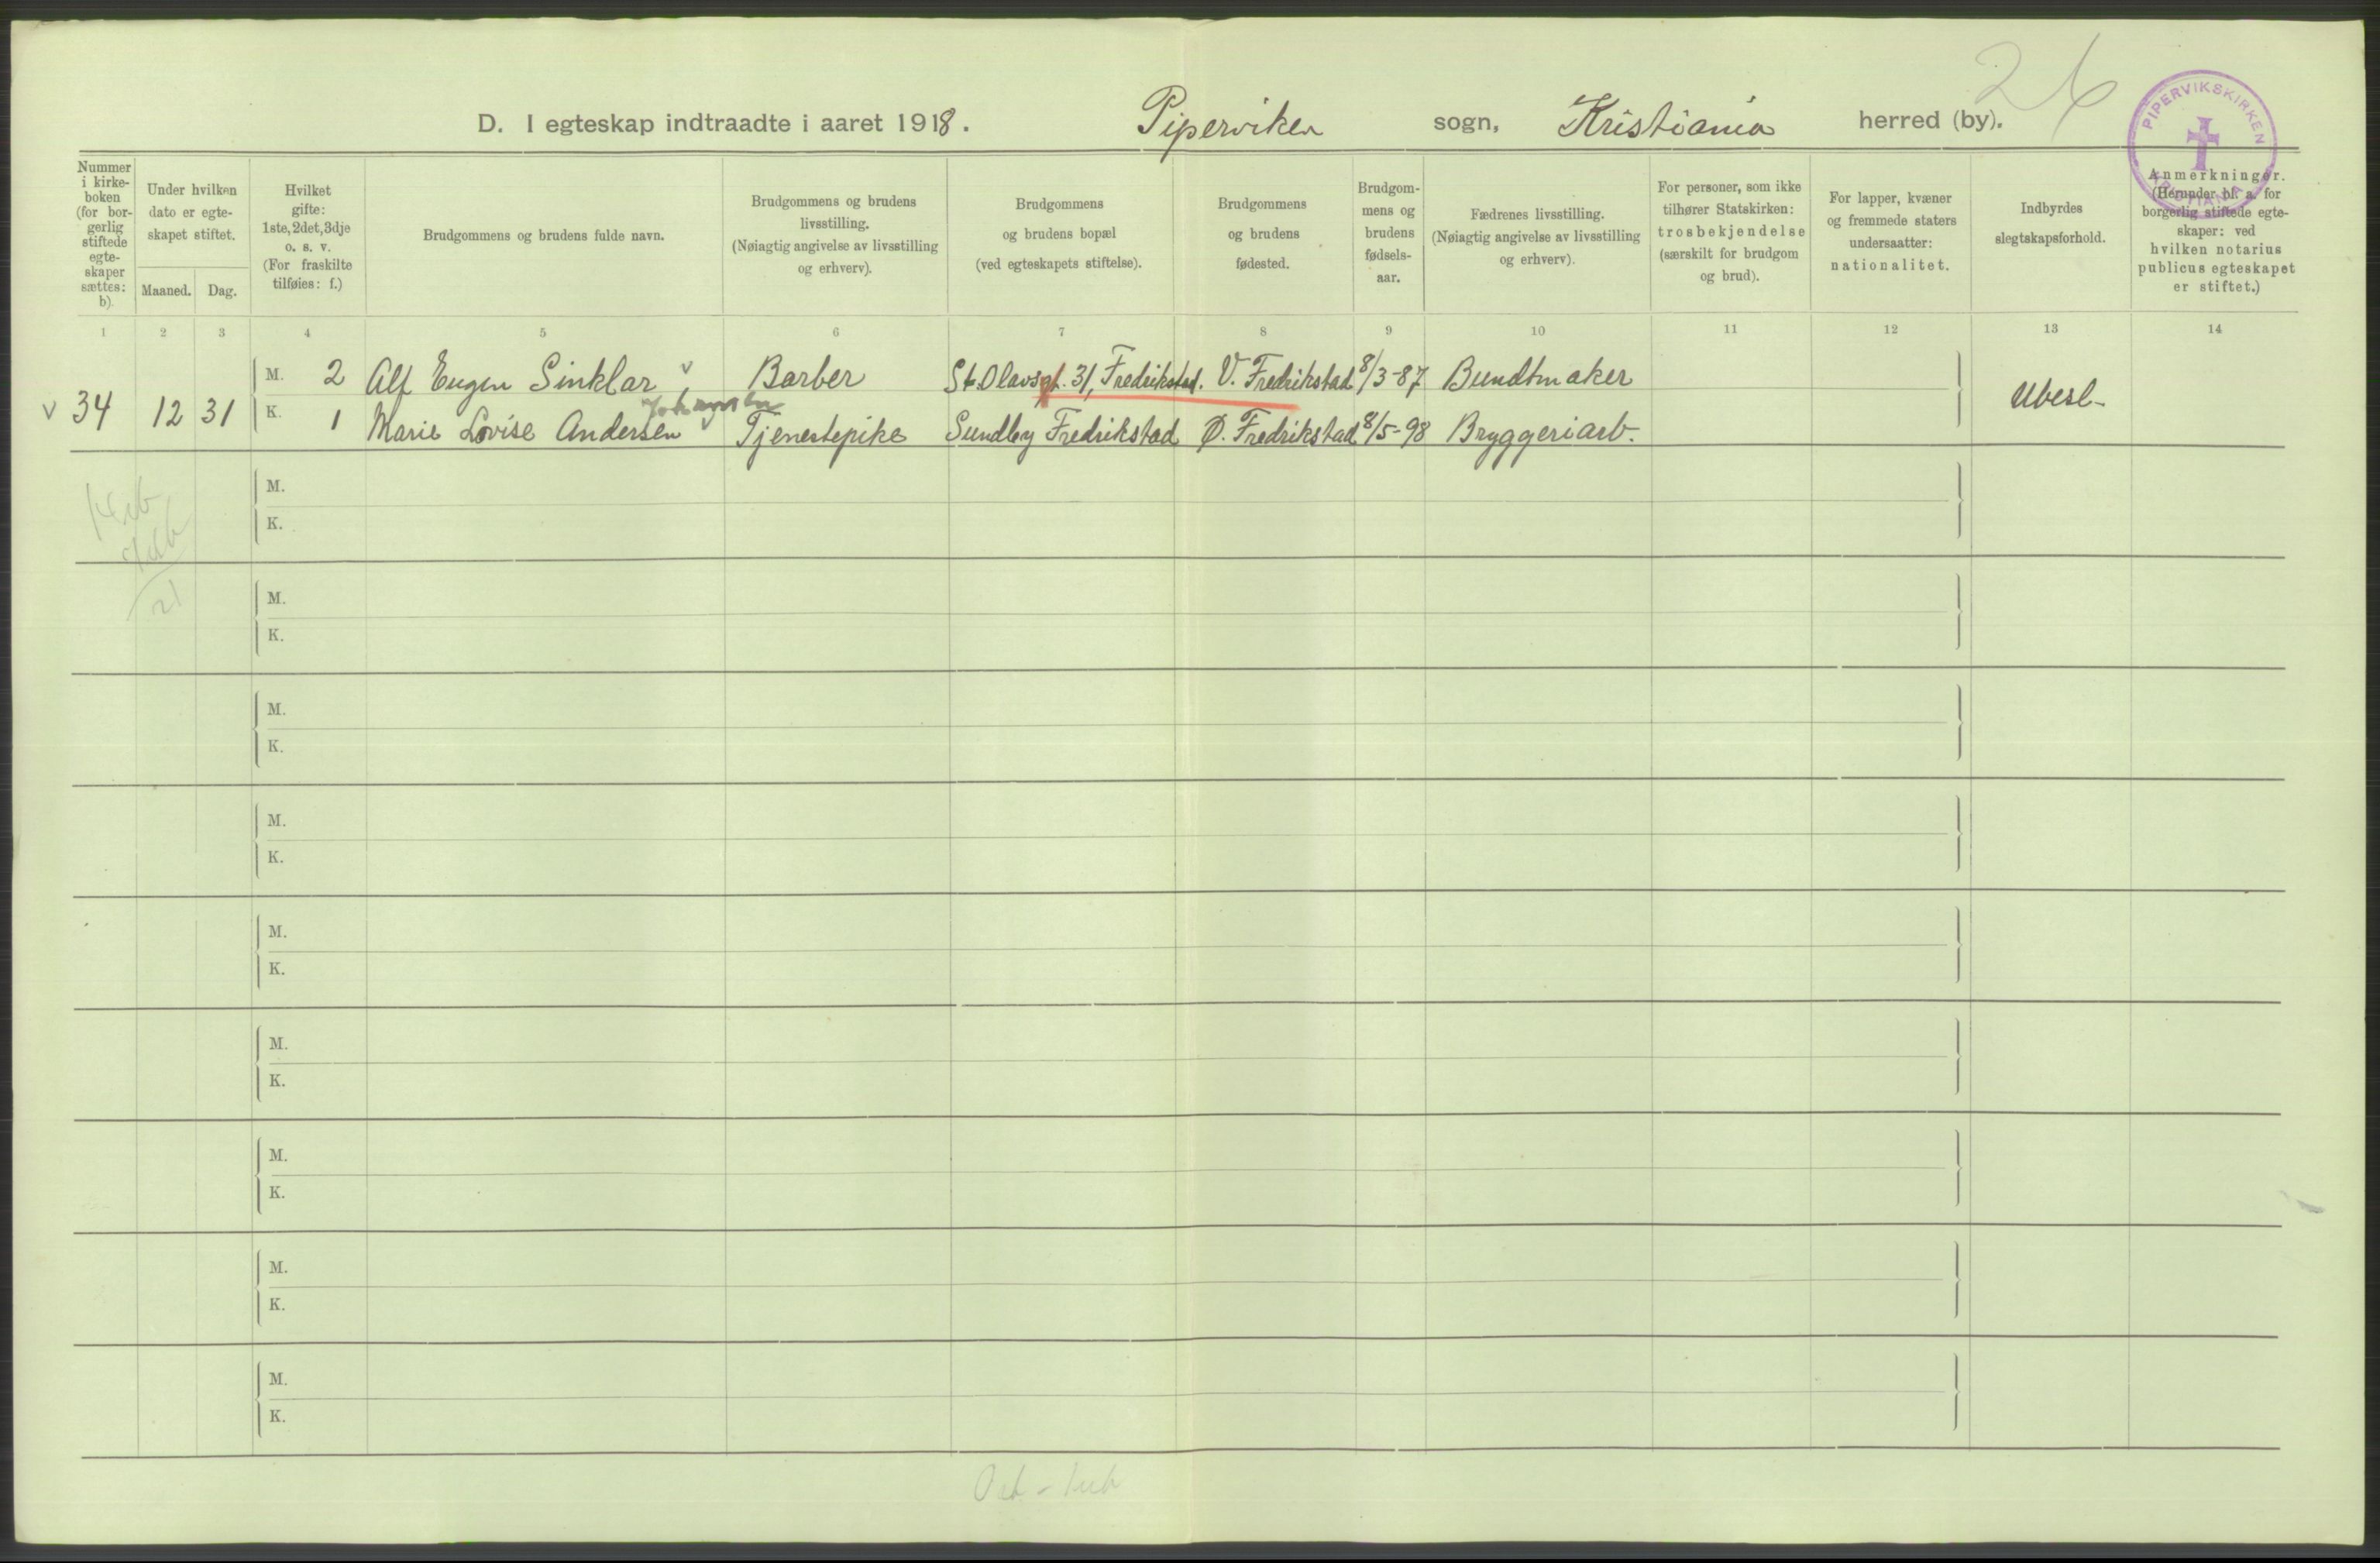 26
D. I egteskap indtraadte i aaret 1918. Piperviken sogn, Kristiania herred (by).
PIPERVIKSKIRKEN
KRISTIANIA
Nummer i kirke-boken (for bor-gerlig stiftede egte-skaper sættes: b).
Under hvilken dato er egte-skapet stiftet.
Maaned. Dag.
Hvilket gifte: 1ste, 2det, 3dje o. s. v. (For fraskilte tilføies: f.)
Brudgommens og brudens fulde navn.
Brudgommens og brudens livsstilling. (Nøiagtig angivelse av livsstilling og erhverv).
Brudgommens og brudens bopæl (ved egteskapets stiftelse).
Brudgommens og brudens fødested.
Brudgom-mens og brudens fødsels-aar.
Fædrenes livsstilling. (Nøiagtig angivelse av livsstilling og erhverv).
For personer, som ikke tilhører Statskirken: trosbekjendelse (særskilt for brudgom og brud).
For lapper, kvæner og fremmede staters undersaatter: nationalitet.
Indbyrdes slegtskapsforhold.
Anmerkninger. (Herunder bl. a. for borgerlig stiftede egte-skaper: ved hvilken notarius publicus egteskapet er stiftet.)
1 2 3 4 5 6 7 8 9 10 11 12 13 14
M. 2 Alf Eugen Sinklar v Barber St. Olavsgt. 31, Fredrikstad. V. Fredrikstad 8/3-87 Bundtmaker
v 34 12 31 Ubesl-
K. 1 Marie Lovise Andersen v Tjenestepike Sundby Fredrikstad Ø. Fredrikstad 8/5-98 Bryggeriarb.
M.
K.
21
M.
K.
M.
K.
M.
K.
M.
K.
M.
K.
M.
K.
M.
K.
M.
K.